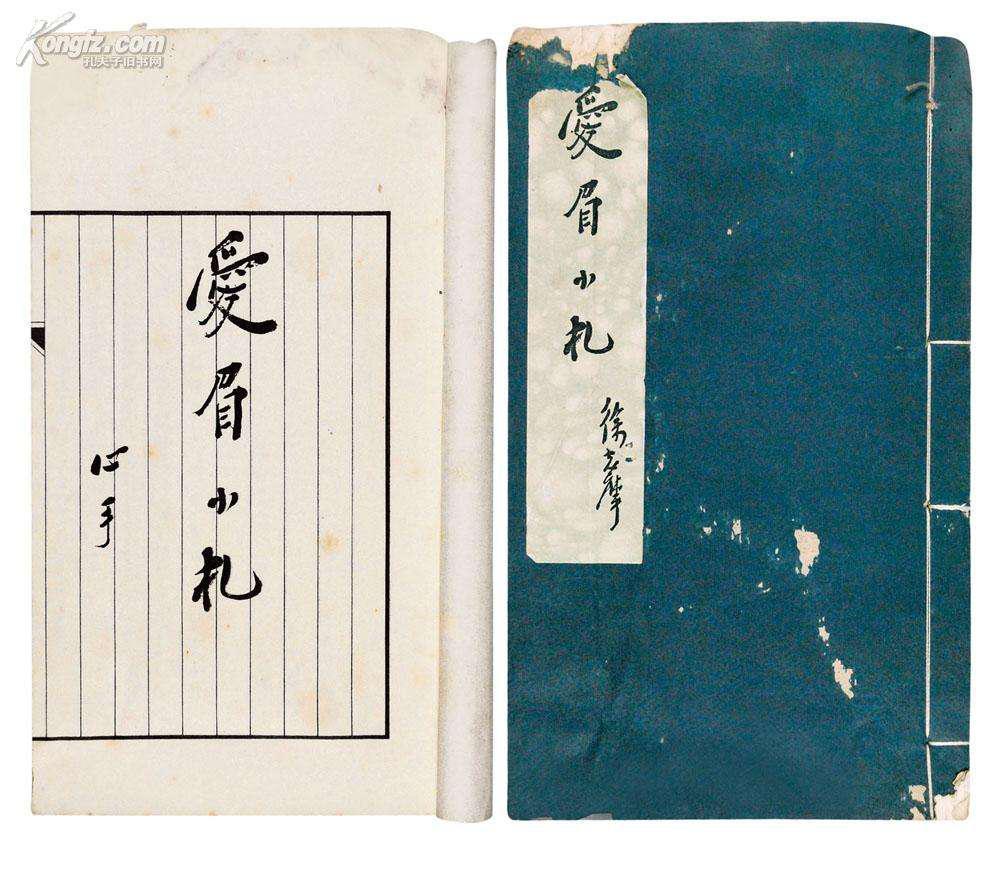 Kongfz.com
孔夫子旧书网
愛眉小札
心手
愛眉小札
徐志摩